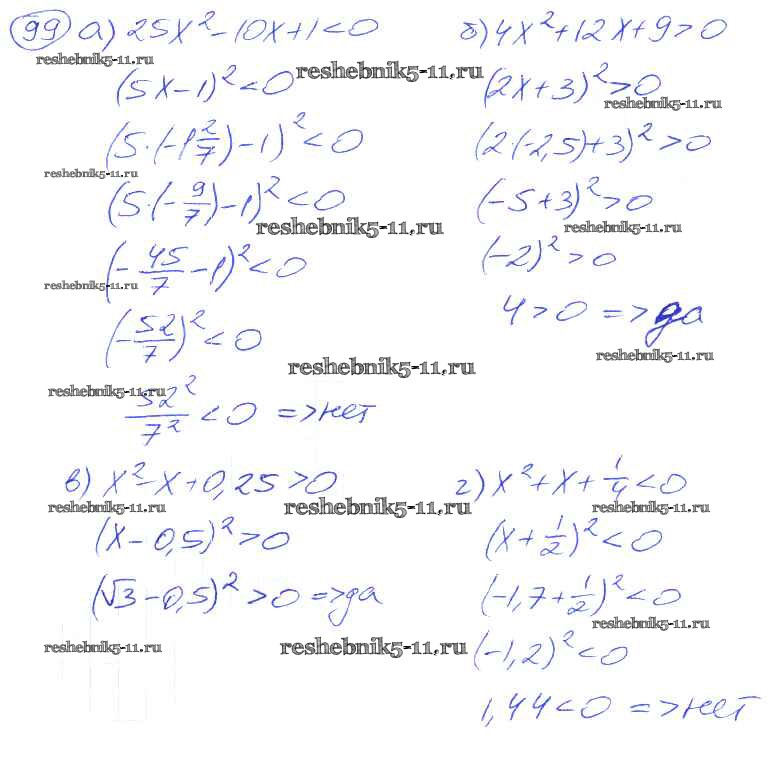 99 а) 25x² - 10x + 1 < 0
reshebnik5-11.ru
(5x - 1)² < 0
reshebnik5-11.ru
(5·(-1 2/7) - 1)² < 0
reshebnik5-11.ru
(5·(-9/7) - 1)² < 0
reshebnik5-11.ru
(-45/7 - 1)² < 0
reshebnik5-11.ru
(-52/7)² < 0
reshebnik5-11.ru
reshebnik5-11.ru
52²/7² < 0 => нет
б) 4x² + 12x + 9 > 0
(2x + 3)² > 0
reshebnik5-11.ru
(2·(-2,5) + 3)² > 0
(-5 + 3)² > 0
reshebnik5-11.ru
(-2)² > 0
4 > 0 => да
reshebnik5-11.ru
в) x² - x + 0,25 > 0
reshebnik5-11.ru
reshebnik5-11.ru
(x - 0,5)² > 0
(√3 - 0,5)² > 0 => да
reshebnik5-11.ru
reshebnik5-11.ru
г) x² + x + 1/4 < 0
reshebnik5-11.ru
(x + 1/2)² < 0
(-1,7 + 1/2)² < 0
reshebnik5-11.ru
(-1,2)² < 0
1,44 < 0 => нет